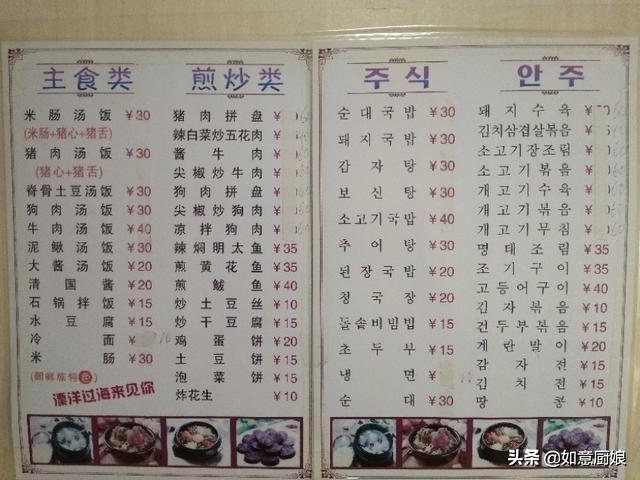 主食类
米肠汤饭 ¥30
(米肠+猪心+猪舌)
猪肉汤饭 ¥30
(猪心+猪舌)
脊骨土豆汤饭 ¥30
狗肉汤饭 ¥30
牛肉汤饭 ¥40
泥鳅汤饭 ¥30
大酱汤饭 ¥20
清国酱 ¥20
石锅拌饭 ¥15
水豆腐 ¥15
冷面 ¥
米肠 ¥30
(朝鲜族特色)
漂洋过海来见你
煎炒类
猪肉拼盘 ¥
辣白菜炒五花肉 ¥
酱牛肉 ¥
尖椒炒牛肉 ¥
狗肉拼盘 ¥
尖椒炒狗肉 ¥
凉拌狗肉 ¥
辣焖明太鱼 ¥35
煎黄花鱼 ¥35
煎鲅鱼 ¥40
炒土豆丝 ¥10
炒干豆腐 ¥15
鸡蛋饼 ¥20
土豆饼 ¥15
泡菜饼 ¥15
炸花生 ¥10
주식
순대국밥 ¥30
돼지국밥 ¥30
감자탕 ¥30
보신탕 ¥30
소고기국밥 ¥40
추어탕 ¥30
된장국밥 ¥20
청국장 ¥20
돌솥비빔밥 ¥15
초두부 ¥15
냉면 ¥
순대 ¥30
안주
돼지수육 ¥
김치삼겹살볶음 ¥
소고기장조림 ¥
소고기볶음 ¥
개고기수육 ¥
개고기볶음 ¥
개고기무침 ¥
명태조림 ¥35
조기구이 ¥35
고등어구이 ¥40
감자볶음 ¥10
건두부볶음 ¥15
계란말이 ¥20
감자전 ¥15
김치전 ¥15
땅콩 ¥10
头条 @如意厨娘